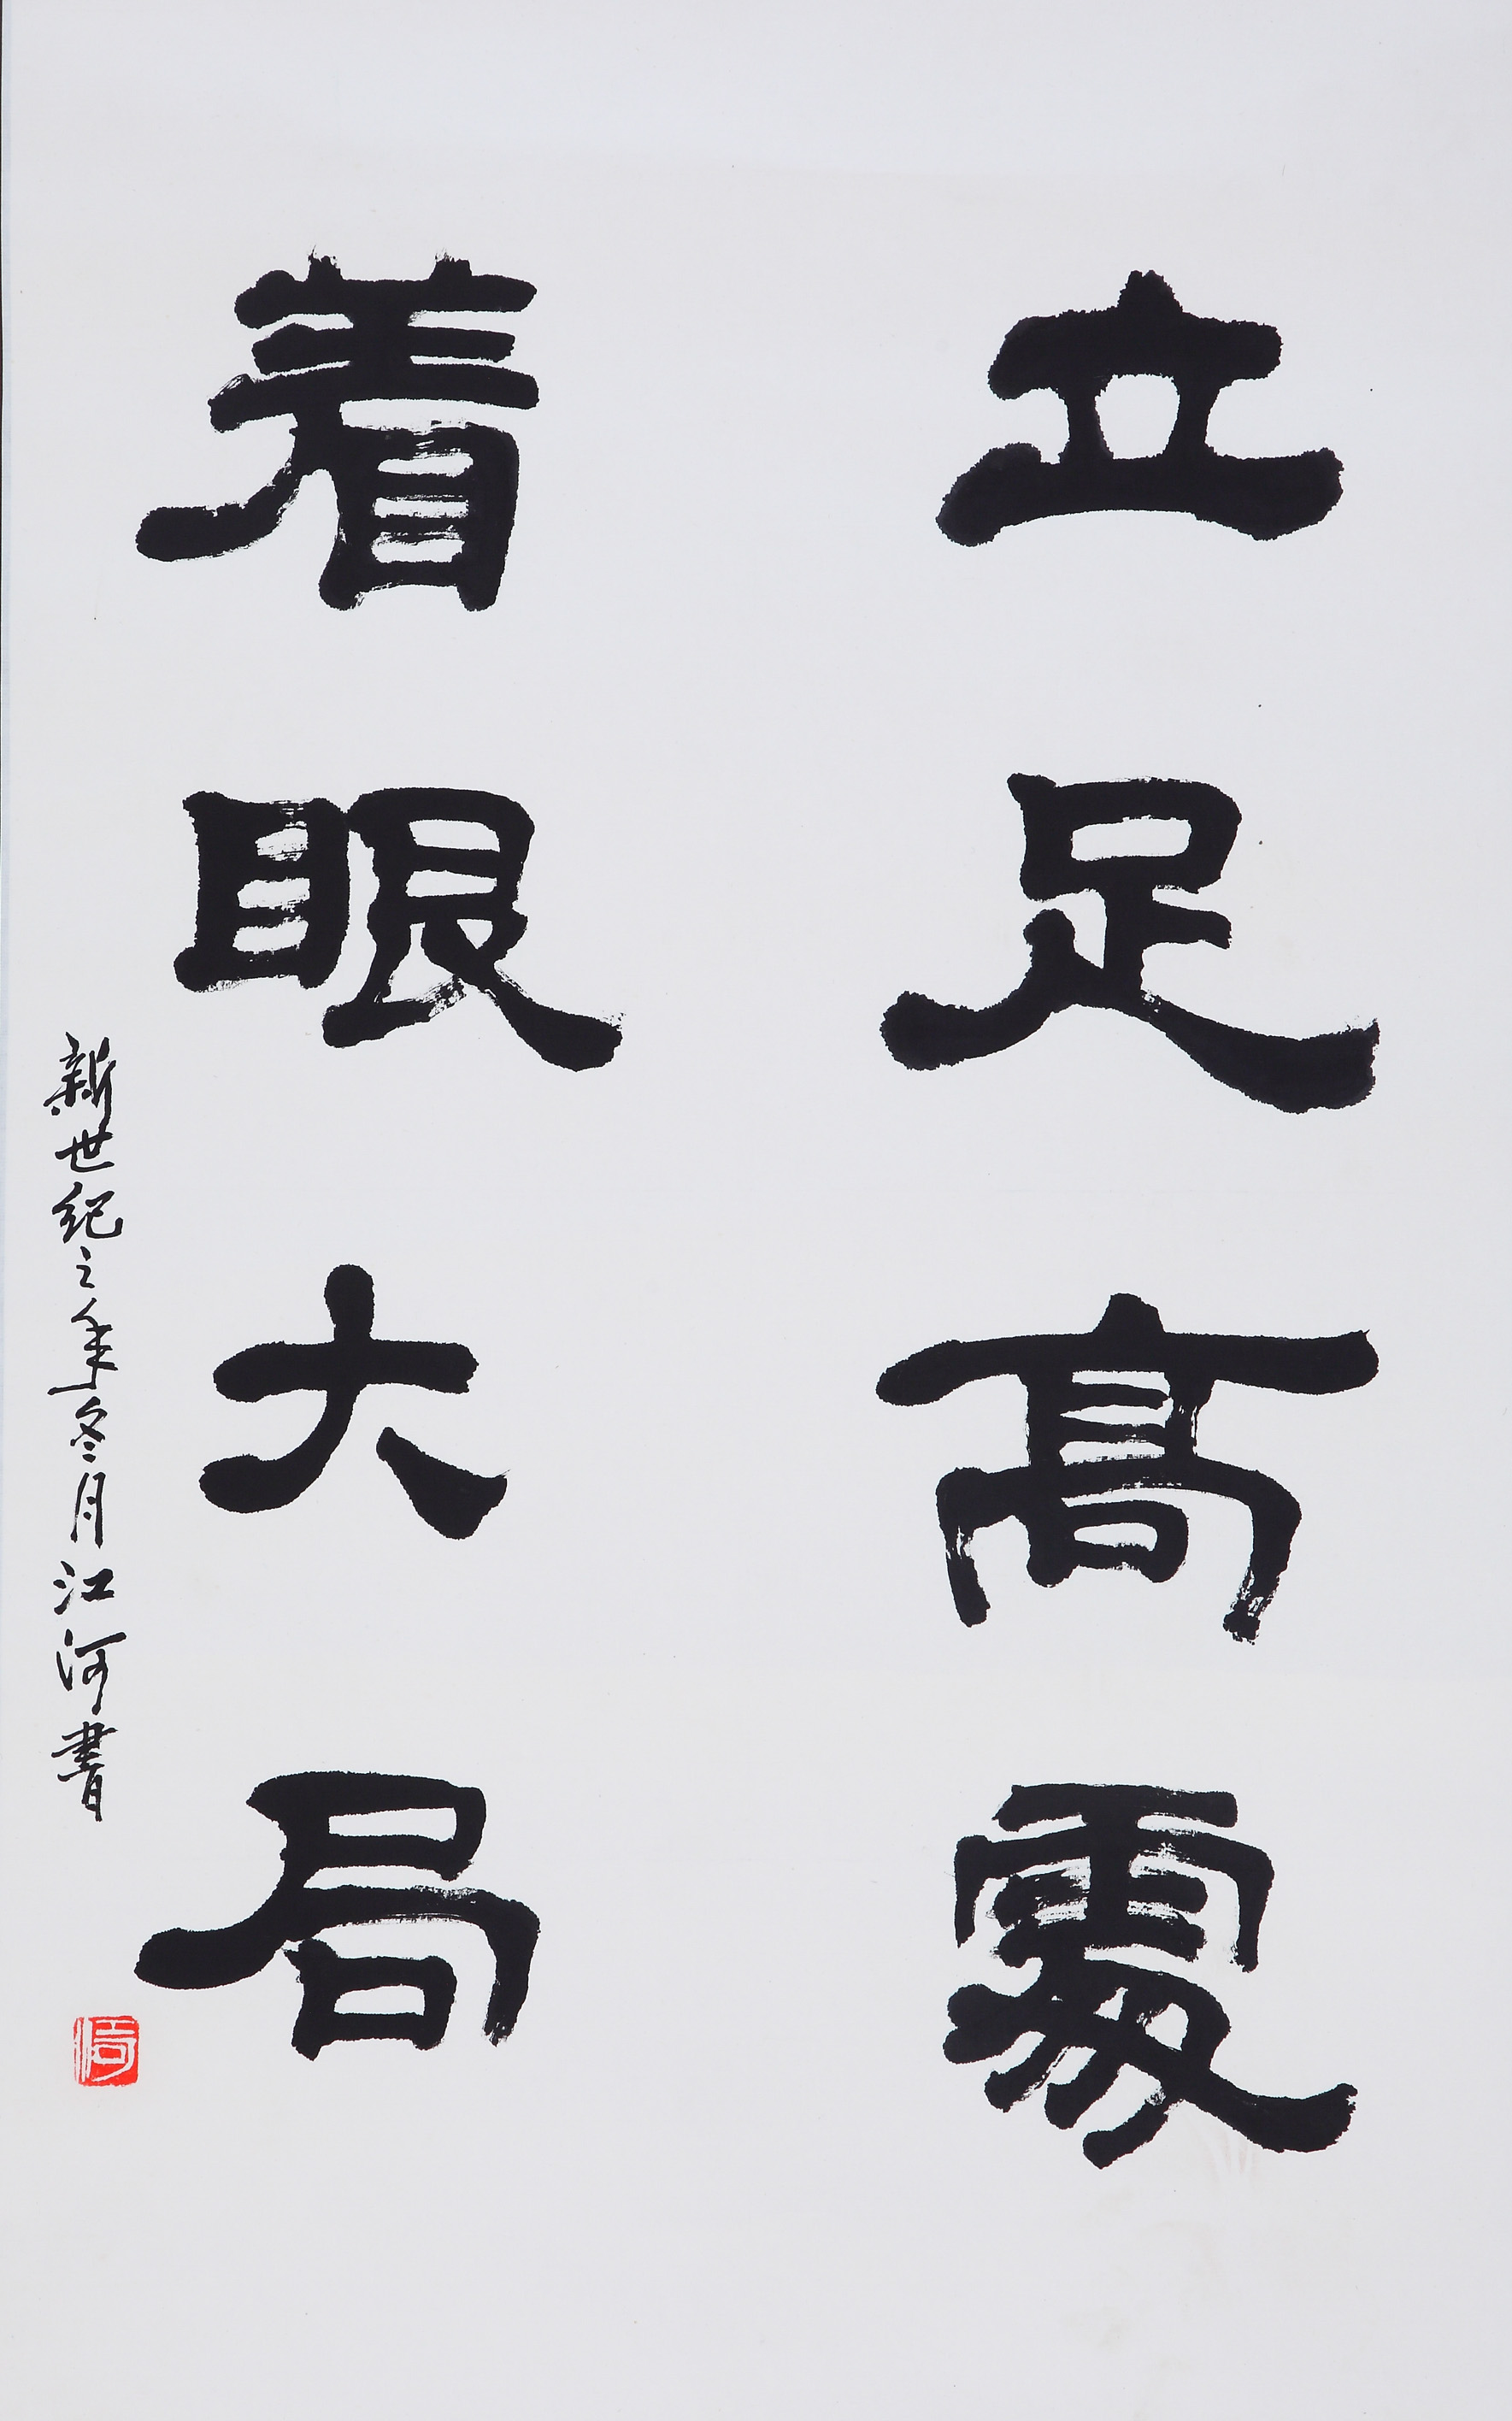 立足高處
着眼大局
新世纪之年冬月江河書